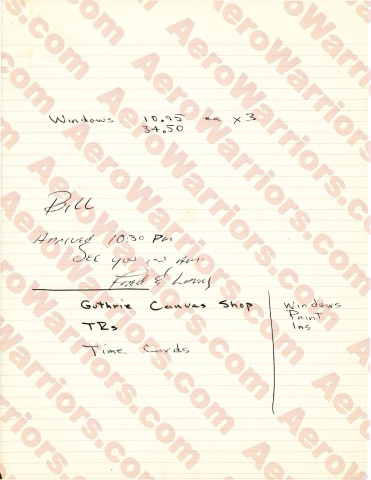 Windows 10.95 ea x3
34.50
Bill
Arrived 10:30 PM
See you in AM
Fred &
Guthrie Canvas Shop
TRs
Time Cards
Windows
Paint
Ins
AeroWarriors.com